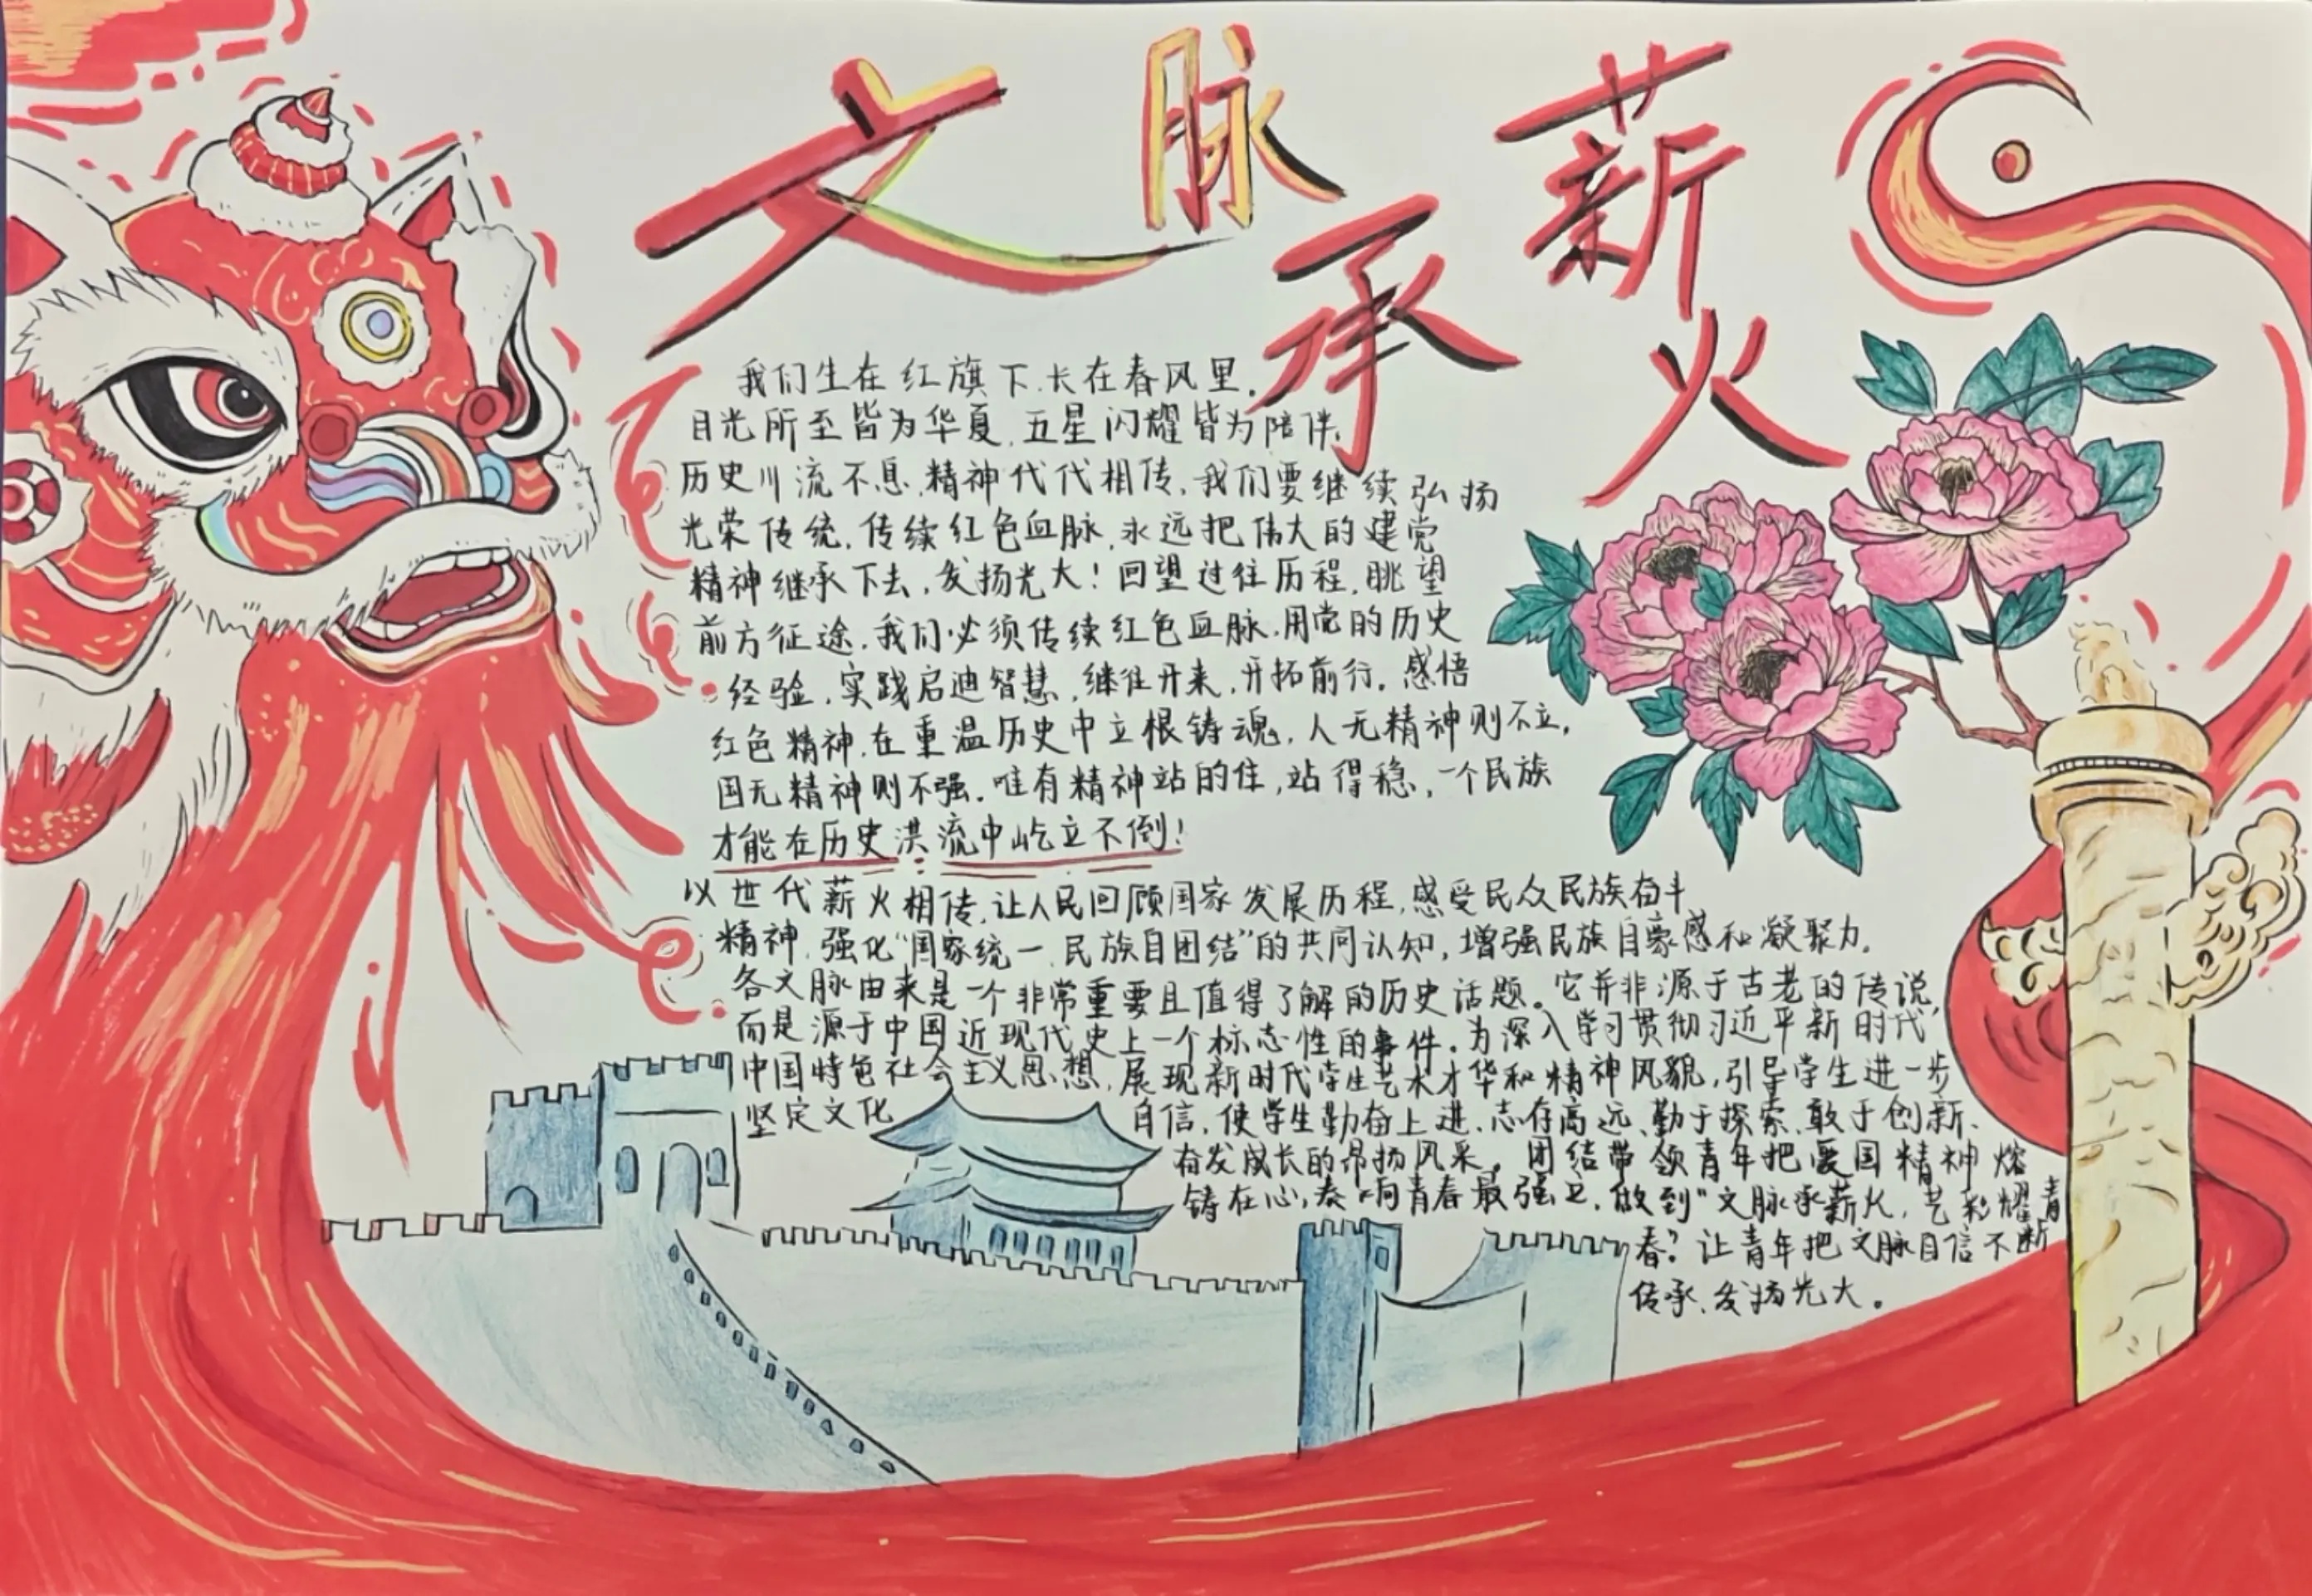 文脉承薪火
我们生在红旗下.长在春风里.
目光所至皆为华夏.五星闪耀皆为陪伴.
历史川流不息.精神代代相传.我们要继续弘扬
光荣传统.传续红色血脉.永远把伟大的建党
精神继承下去,发扬光大!回望过往历程.眺望
前方征途.我们必须传续红色血脉.用党的历史
经验.实践启迪智慧.继往开来.开拓前行.感悟
红色精神.在重温历史中立根铸魂.人无精神则不立.
国无精神则不强.唯有精神站的住,站得稳,一个民族
才能在历史洪流中屹立不倒!
以世代薪火相传.让人民回顾国家发展历程.感受民众民族奋斗
精神.强化“国家统一.民族自团结”的共同认知,增强民族自豪感和凝聚力.
各文脉由来是一个非常重要且值得了解的历史话题。它并非源于古老的传说,
而是源于中国近现代史上一个标志性的事件.为深入学习贯彻习近平新时代
中国特色社会主义思想.展现新时代学生艺术才华和精神风貌,引导学生进一步
坚定文化自信,使学生勤奋上进.志存高远.勤于探索.敢于创新.
奋发成长的昂扬风采。团结带领青年把爱国精神熔
铸在心,奏响青春最强,做到“文脉承薪火,艺彩耀青
春?让青年把文脉自信不断
传承.发扬光大。